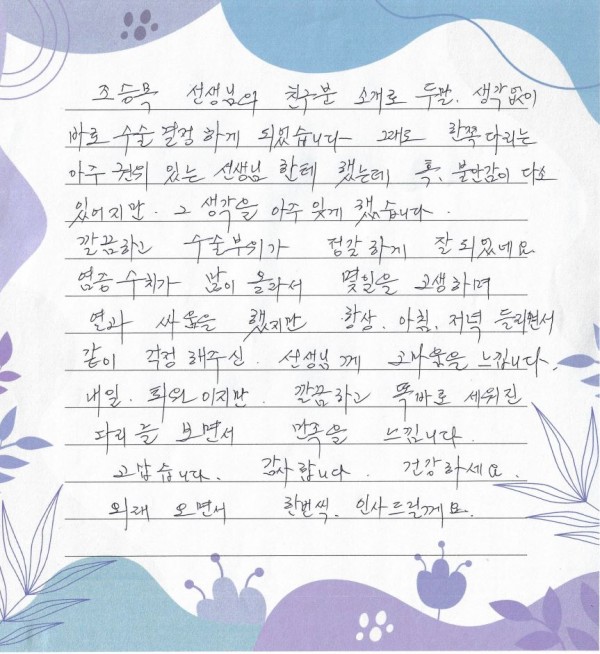 조승목 선생님의 친구분 소개로 두말. 생각없이
바로 수술 결정 하게 되었습니다 그래도 한쪽다리는
아주 권위 있는 선생님 한테 했는데 혹, 불안감이 다소
있어지만. 그 생각을 아주 잊게 했습니다.
깔끔하고 수술부위가 정갈하게 잘되있네요
염증수치가 많이 올라서 몇일을 고생하며
열과 싸움을 했지만 항상. 아침. 저녁 들리면서
같이 걱정 해주신. 선생님께 고마움을 느낍니다.
내일. 퇴원이지만. 깔끔하고 똑바로 세워진
다리를 보면서 만족을 느낍니다.
고맙습니다. 감사합니다. 건강하세요.
외래 오면서 한번씩. 인사드릴께요.